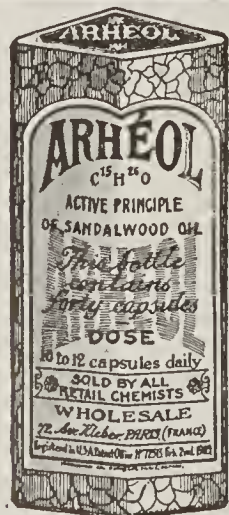 ARHEOL
ARHÉOL
C¹⁵H²⁶O
ACTIVE PRINCIPLE
OF SANDALWOOD OIL
This bottle
contains
forty capsules
DOSE
10 to 12 capsules daily
SOLD BY ALL
RETAIL CHEMISTS
WHOLESALE
72, Ave. Kleber, PARIS (FRANCE)
Registered in U.S.A. Patent Office